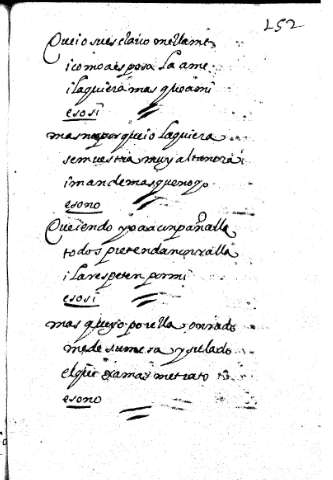 252
Que io su esclavo me llame
i como a esposa la ame
i la quiera mas quo ami
eso si
mas no porque io la quiera
se muestra muy altanera
i mande mas que no yo
eso no
Queriendo yo acunpañalla
todos pretendan onralla
i la respeten por mi
eso si
mas que yo por ella onrado
me de su mesa y su lado
el que jamas me trato
eso no